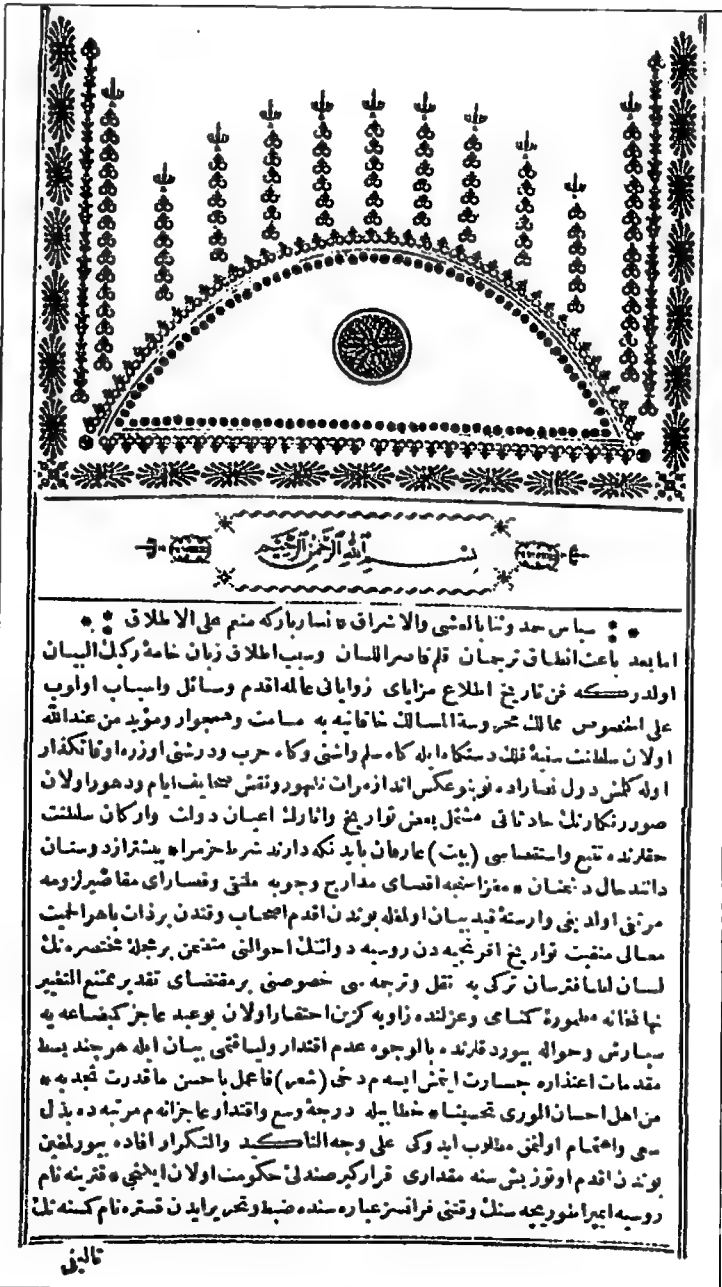 بسم الله الرحمن الرحيم
سپاس حمد وثنا بالعشى والاشراق * نثار بارکه منعم على الاطلاق
اما بعد باعث انطاق ترجمان قلم قاصر اللسان وسبب اطلاق زبان خامهٔ رکيك البيان
اولدرکه فن تاريخ اطلاع مزاياى زواياى عالمه اقدم وسائل واسباب اولوب
على الخصوص ممالك محروسة المسالك خاقانيه به مسامت وهمجوار ومؤيد من عند الله
اولان سلطنت سنيهٔ فلك دستکاه ايله کاه سلم واشتى وکاه حرب ودرشتى اوزره اوقاتکذار
اوله کلمش دول نصاراده نوبنو عکس انداز مرات ظهور ونقش صحايف ايام ودهور اولان
صور رنکارنك حادثاتى مشتمل بعض تواريخ واثارك اعيان دولت وارکان سلطنت
حقلرنده تتبع واستقصاسى (بيت) عارفان بايد نکه دارند شرط حزمرا * بيشتر از دوستان
دانند حال دشمنان * مغزاسنجه اقصاى مدارج وجوبه ملتقى وقصاراى مقاصير لزومه
مرتقى اولديغى وارستهٔ قيد بيان اولمغله بوندن اقدم اصحاب وقتدن بر ذات باهر الحميت
معالى منقبت تواريخ افرنجيه دن روسيه دولتنك احوالنى متضمن بر مجلهٔ مختصره نك
لسان لطافترسان ترکى به نقل وترجمه سى خصوصنى بر مقتضاى تقدير ممتنع التغيير
نهانخانه مطمورهٔ کمنامى وعزلتده زاويه کزين احتقار اولان بو عبد عاجز کمبضاعه به
سپارش وحواله بيوردقلرنده بالوجوه عدم اقتدار ولياقتمى بيان ايله هر چند بسط
مقدمات اعتذاره جسارت ايتمش ايسه م دخى (شعر) فاعمل باحسن ما قدرت فعجدبه *
من اهل احسان الورى تحسينا * خطابيله درجهٔ وسع واقتدار عاجزانه م مرتبه ده بذل
سعى واهتمام اولنمق مطلوب ايدوکى على وجه التاکيد والتکرار افاده بيورلمغين
بوندن اقدم اوتوز بش سنه مقدارى قرارکير صندلئ حکومت اولان ايکنجى * قترينه نام
روسيه ايمپراطوريچه سنك وقتنى فرانسز عباره سنده ضبط وتحرير ايدن قستره نام کسنه نك
تاليفى